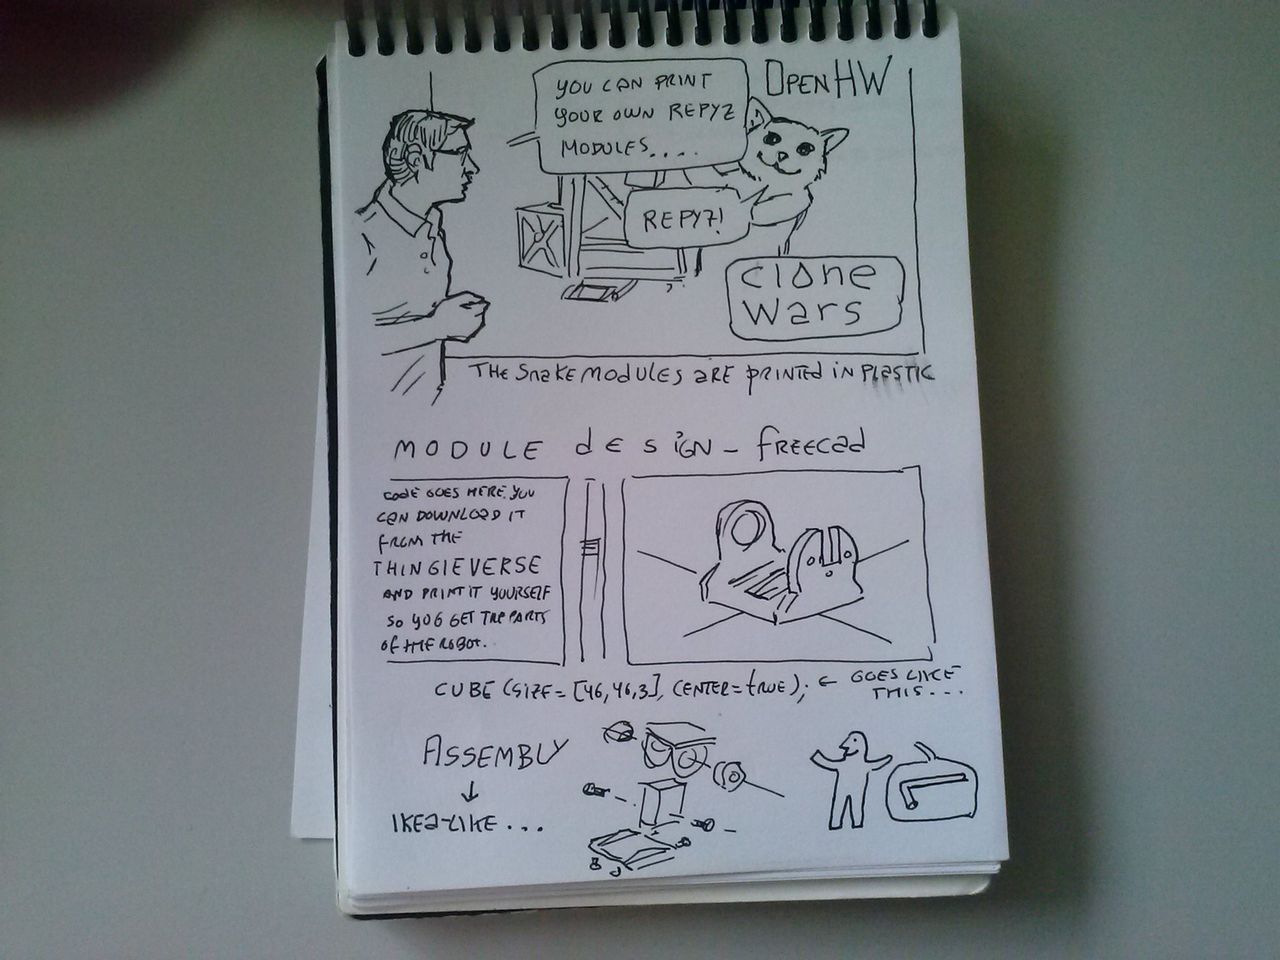 YOU CAN PRINT
YOUR OWN REPYZ
MODULES....
OPENHW
REPYZ!
Clone
wars
THE SNAKE MODULES ARE PRINTED IN PLASTIC
MODULE dESIGN - FREECAD
CODE GOES HERE. YOU
CAN DOWNLOAD IT
FROM THE
THINGIEVERSE
AND PRINT IT YOURSELF
SO YOU GET THE PARTS
OF THE ROBOT..
CUBE (SIZE = [46,46,3], CENTER = TRUE); ← GOES LIKE
THIS...
ASSEMBLY
↓
IKEA-LIKE...